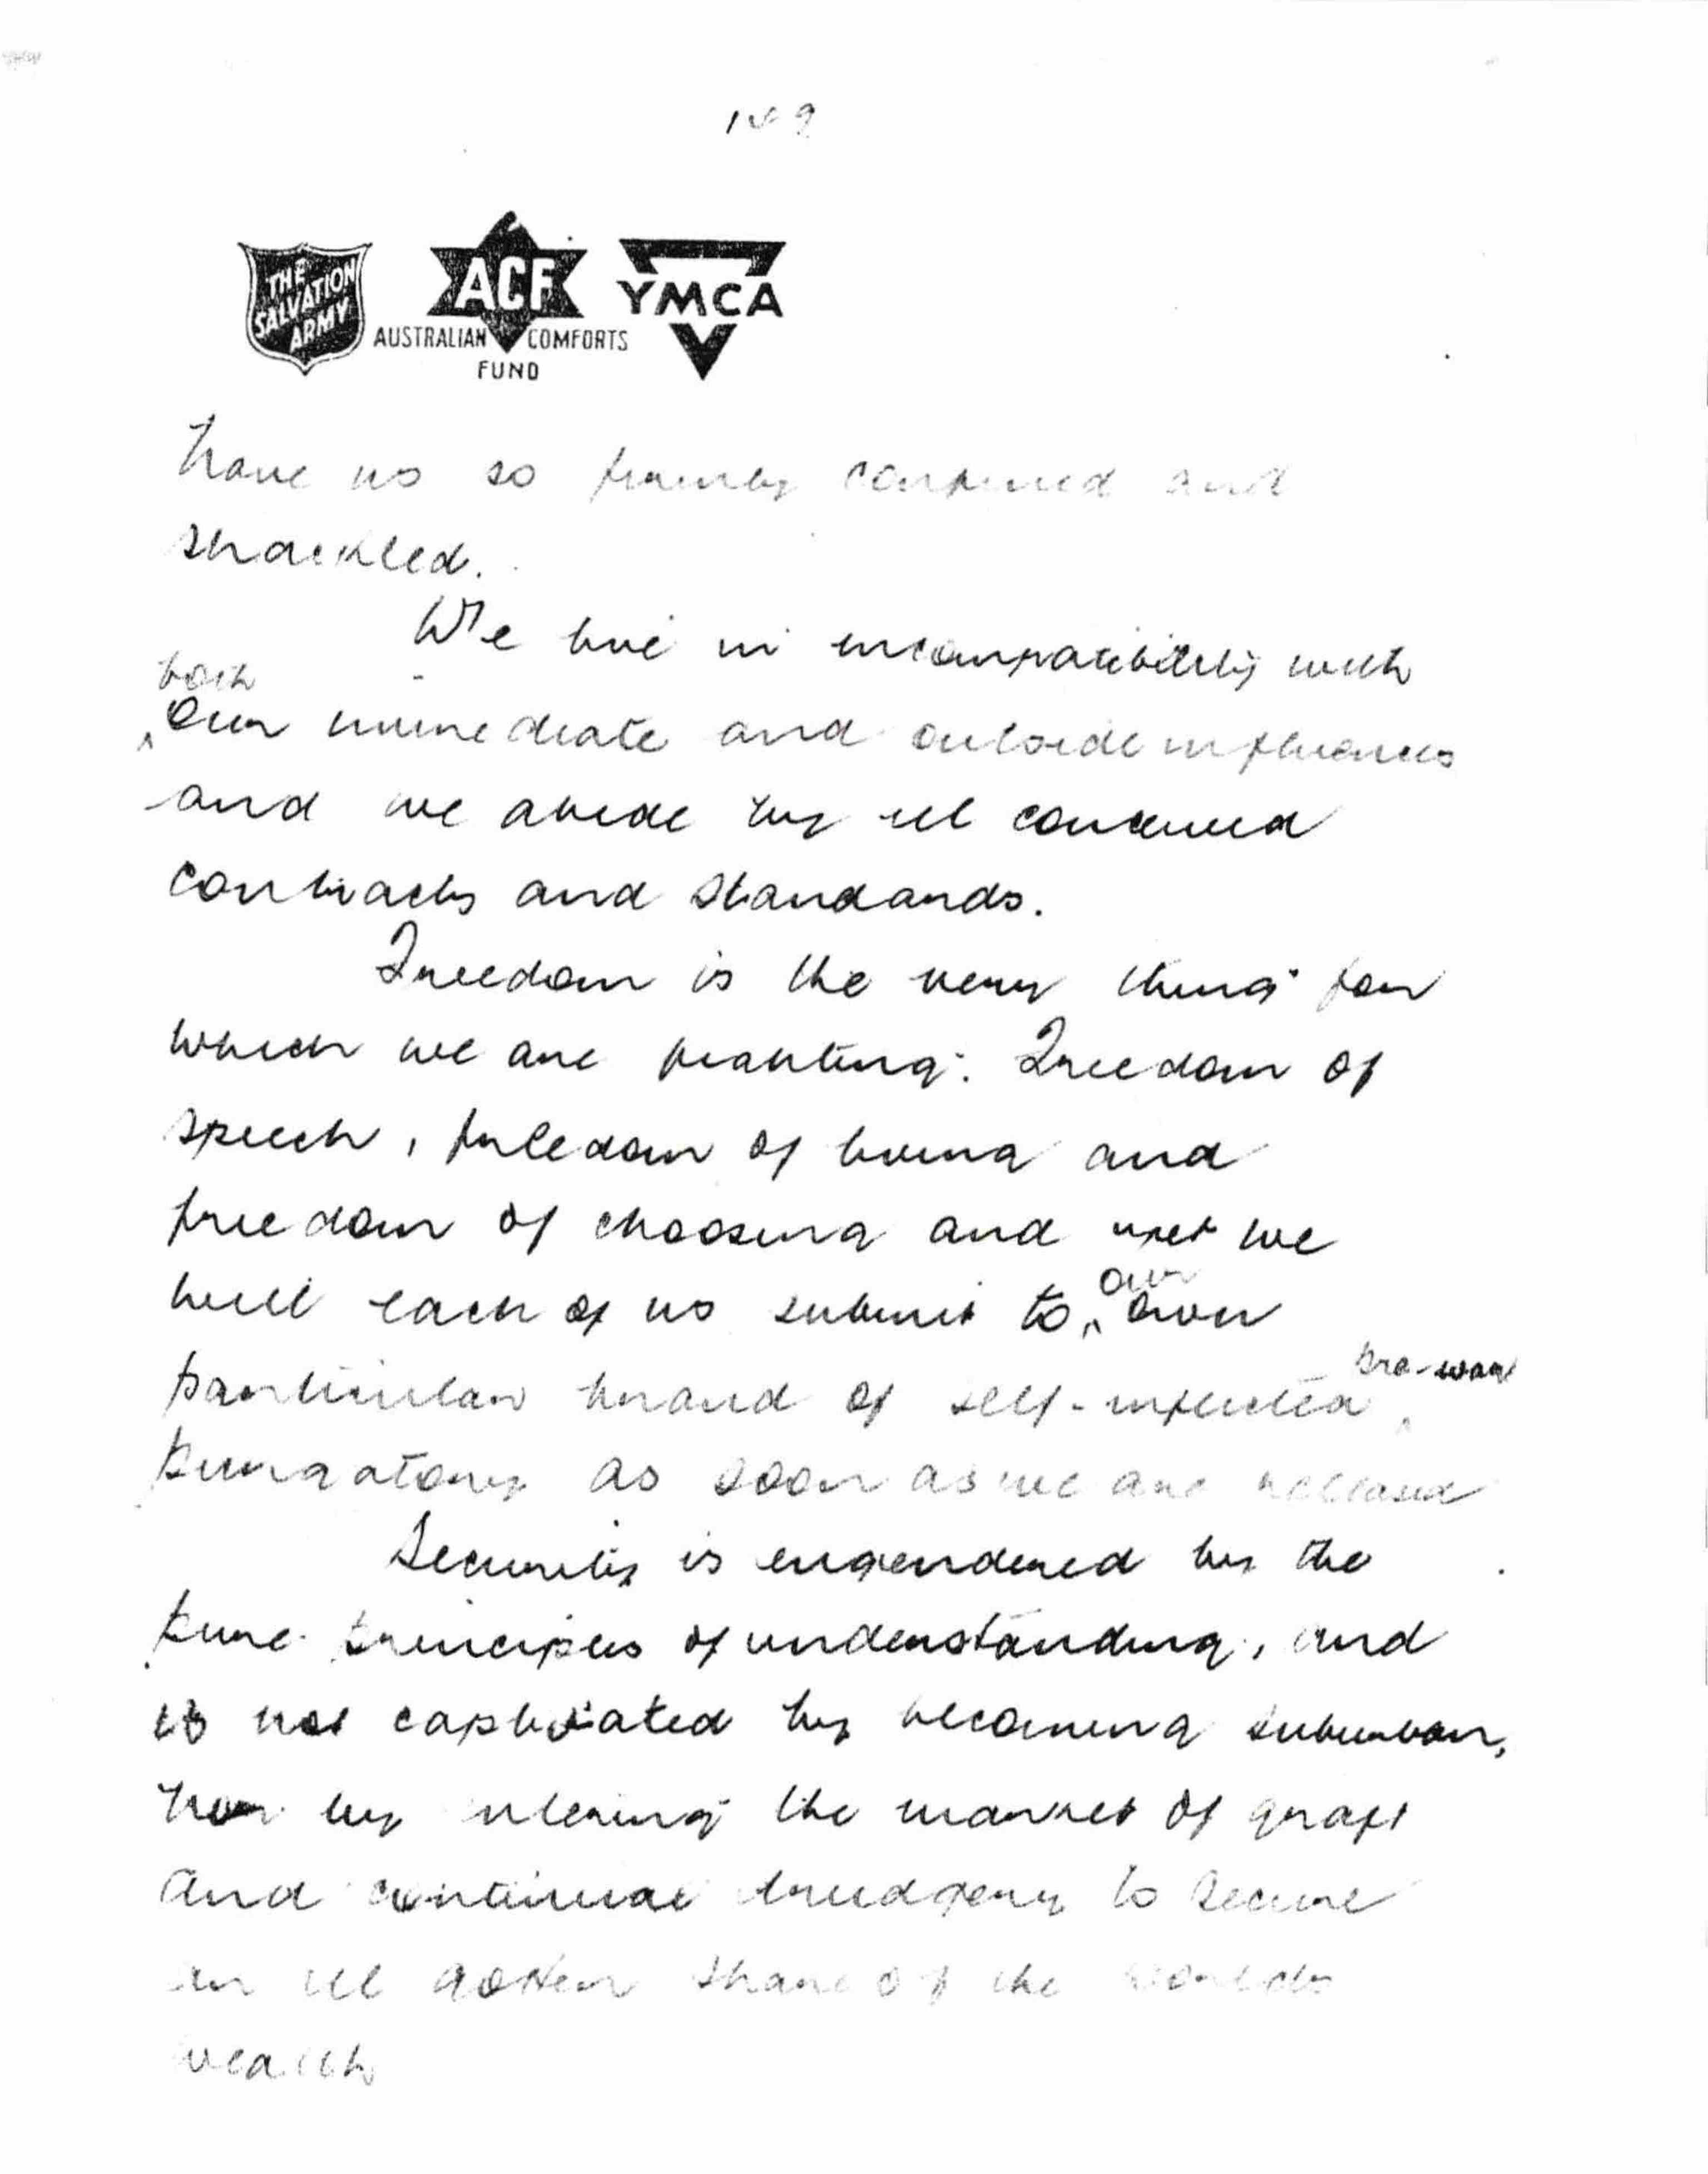 149
THE SALVATION ARMY
ACF
AUSTRALIAN COMFORTS FUND
YMCA
have us so firmly confined and
shackled.
We live in incompatibility with
both
our immediate and outside influences
and we abide by ill conceived
contracts and standards.
Freedom is the very thing for
which we are fighting: Freedom of
speech, freedom of living and
freedom of choosing and yet we
will each of us submit to our own
particular brand of self-inflicted pre-war
purgatory as soon as we are released
Security is engendered by the
pure principles of understanding, and
is not captivated by becoming suburban,
nor by entering the market of graft
and continual drudgery to secure
an ill gotten share of the worlds
wealth